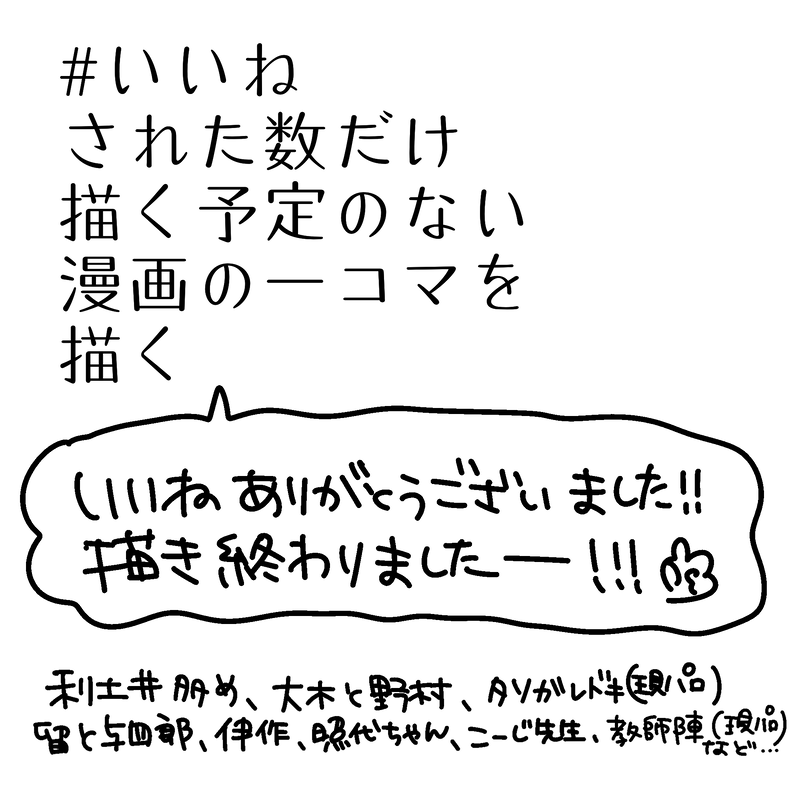 #いいね
された数だけ
描く予定のない
漫画の一コマを
描く
いいねありがとうございました!!
描き終わりましたー!!!
利土井多め、大木と野村、タソガレドキ(現パロ)
留と与四郎、伊作、照代ちゃん、こーじ先生、教師陣(現パロ)
など…